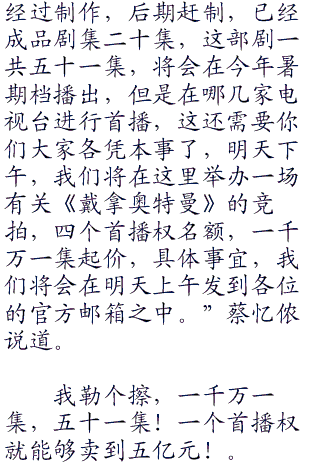 经过制作，后期赶制，已经
成品剧集二十集，这部剧一
共五十一集，将会在今年暑
期档播出，但是在哪几家电
视台进行首播，这还需要你
们大家各凭本事了，明天下
午，我们将在这里举办一场
有关《戴拿奥特曼》的竞
拍，四个首播权名额，一千
万一集起价，具体事宜，我
们将会在明天上午发到各位
的官方邮箱之中。”蔡忆侬
说道。
我勒个擦，一千万一
集，五十一集！一个首播权
就能够卖到五亿元！。